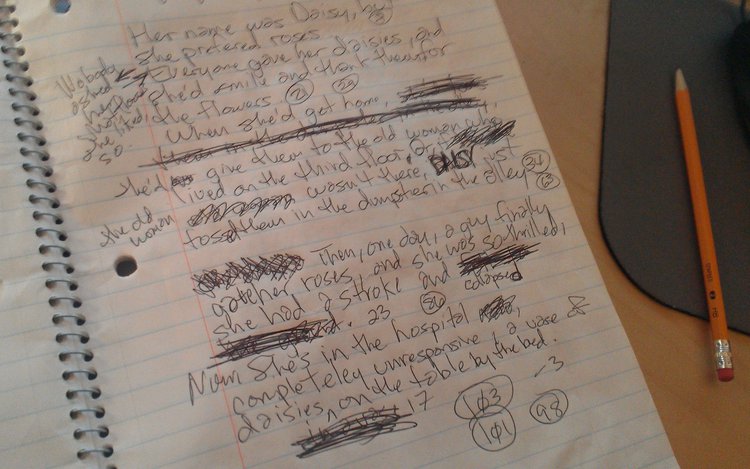 Her name was Daisy, but (5)
she prefered roses
Nobody
asked
her
what flowers
she liked,
so
Everyone gave her daisies, and
she'd smile and thank them for
the flowers. (21)
When she'd get home,
she'd give them to the old woman who
lived on the third floor. Or if
the old
woman
wasn't there, DAISY just
tossed them in the dumpster in the alley.
Then, one day, a guy finally
gat her roses, and she was so thrilled,
she had a stroke and
colapsed
. 23 (86)
Now She's in the hospital,
completeley unresponsive, a vase of
daisies on the table by the bed.
17 (103) -3
(101) (98)